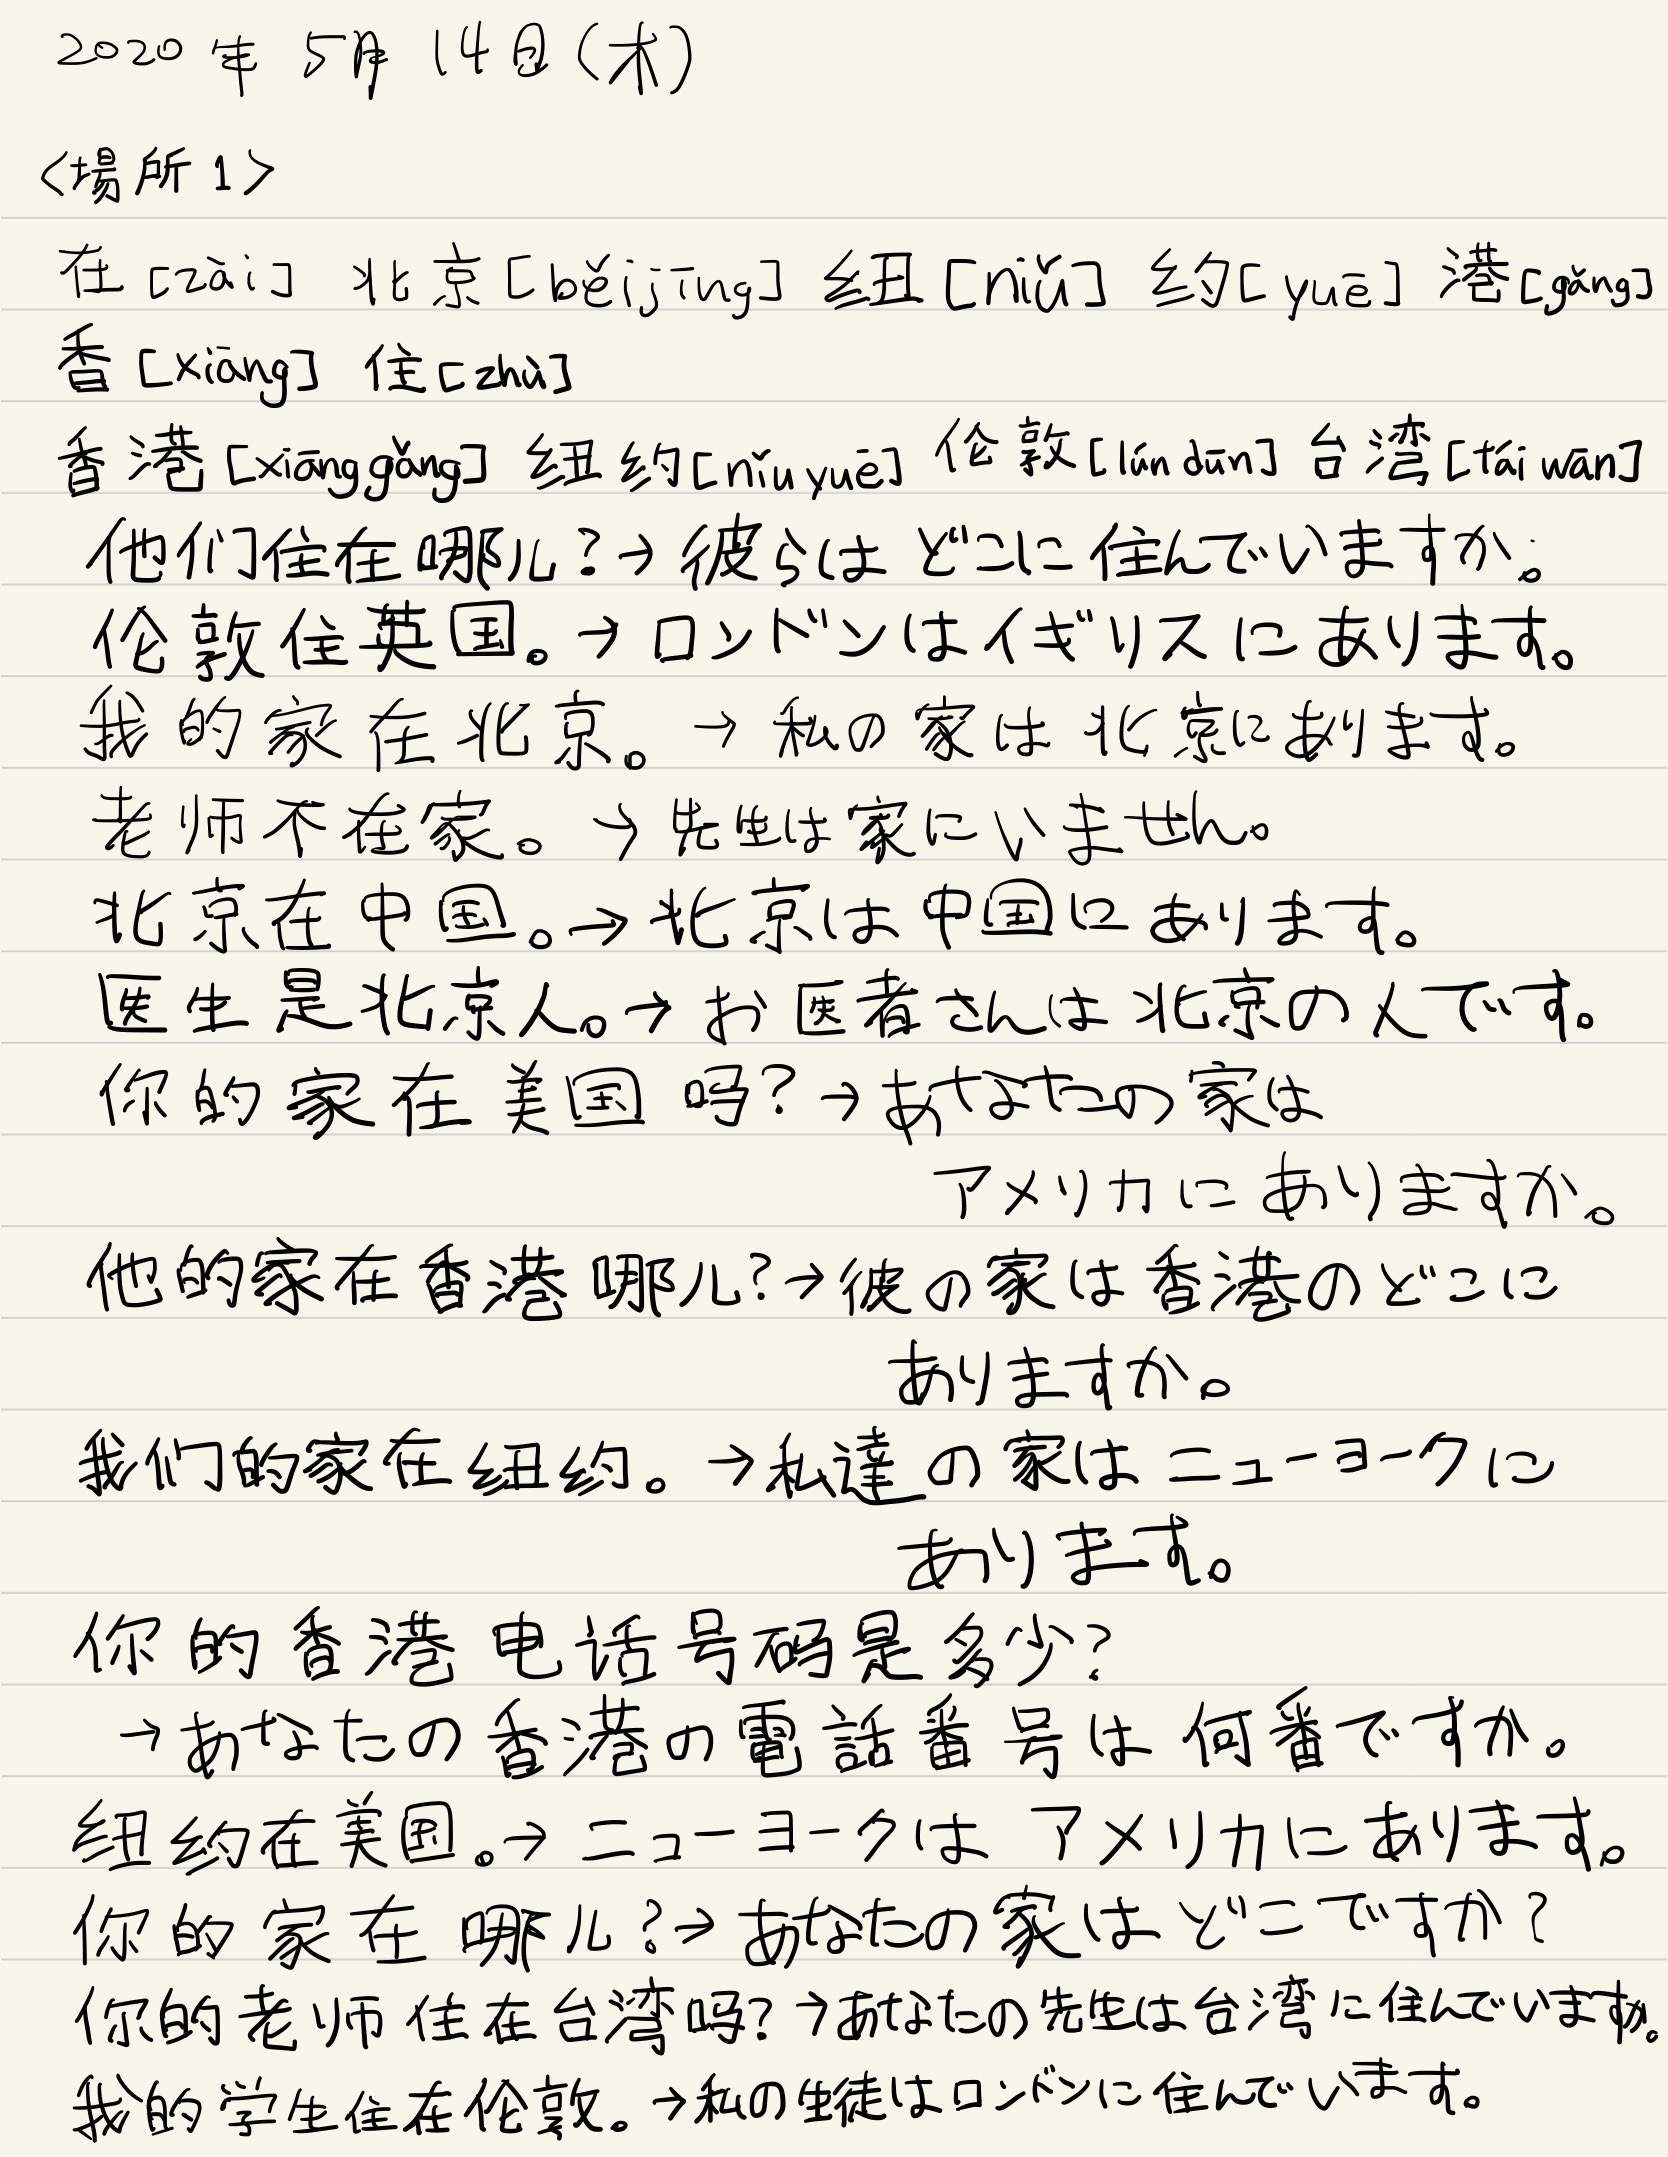 2020年 5月 14日(木)
<場所1>
在[zài] 北京[běijīng] 纽[niǔ] 约[yuē] 港[gǎng]
香[xiāng] 住[zhù]
香港[xiānggǎng] 纽约[nǐuyuē] 伦敦[lúndūn] 台湾[táiwān]
他们住在哪儿?→彼らはどこに住んでいますか。
伦敦住英国。→ロンドンはイギリスにあります。
我的家在北京。→私の家は北京にあります。
老师不在家。→先生は家にいません。
北京在中国。→北京は中国にあります。
医生是北京人。→お医者さんは北京の人です。
你的家在美国吗?→あなたの家は
アメリカにありますか。
他的家在香港哪儿?→彼の家は香港のどこに
ありますか。
我们的家在纽约。→私達の家はニューヨークに
あります。
你的香港电话号码是多少?
→あなたの香港の電話番号は何番ですか。
纽约在美国。→ニューヨークはアメリカにあります。
你的家在哪儿?→あなたの家はどこですか?
你的老师住在台湾吗?→あなたの先生は台湾に住んでいますか。
我的学生住在伦敦。→私の生徒はロンドンに住んでいます。